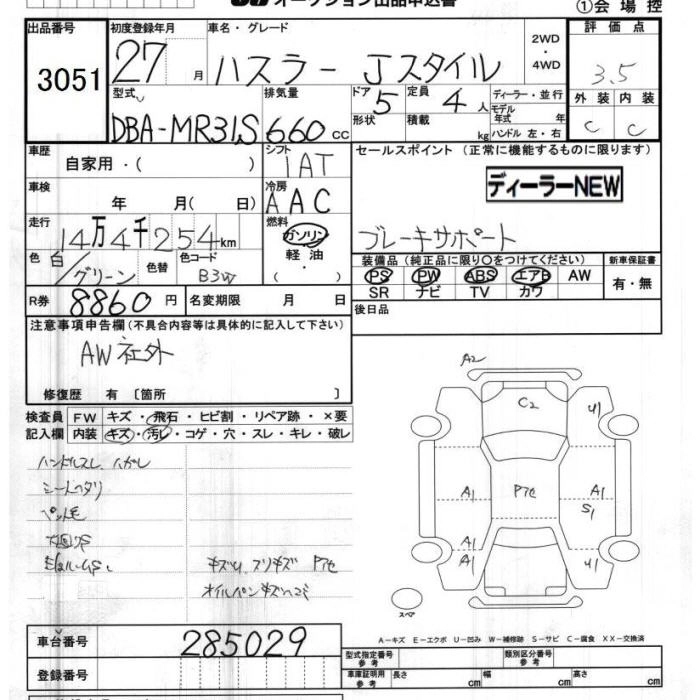 オークション出品申込書
①会場控
出品番号 3051
初度登録年月 27 月
車名・グレード ハスラー Jスタイル
2WD・4WD
評価点 3.5
外装 C 内装 C
型式 DBA-MR31S
排気量 660 cc
ドア 5 形状
定員 4 人 積載 kg
ディーラー・並行
モデル年式 年
ハンドル 左・右
車歴 自家用・( )
シフト 1AT
セールスポイント (正常に機能するものに限ります)
ディーラーNEW
車検 年 月( 日)
冷房 AAC
走行 14万4千254km
燃料 ガソリン 軽油 ( )
ブレーキサポート
色 白/グリーン 色替 色コード B3W
装備品 (純正品に限り○をつけてください)
新車保証書 有・無
PS PW ABS エアB AW
SR ナビ TV カワ
R券 8860 円 名変期限 月 日
後日品
注意事項申告欄 (不具合内容等は具体的に記入して下さい)
AW社外
修復歴 有 〔箇所 〕
検査員記入欄
FW キズ・飛石・ヒビ割・リペア跡・×要
内装 キズ・汚レ・コゲ・穴・スレ・キレ・破レ
ハンドルスレ、ハガレ
シートヘタリ
ペット毛
キズU、スリキズ P色
A2
C2
U1
U1
A1
P色
A1
S1
A1
A1
スペア
A-キズ E-エクボ U-凹み W-補修跡 S-サビ C-腐食 XX-交換済
車台番号 285029
登録番号
型式指定番号 参考
類別区分番号 参考
車庫証明用 参考 長さ cm 幅 cm 高さ cm